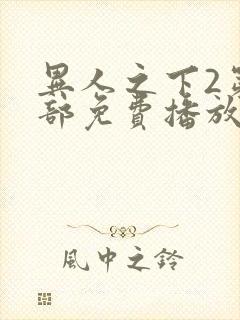 異人之下2第
部免費播放
風中之鈴